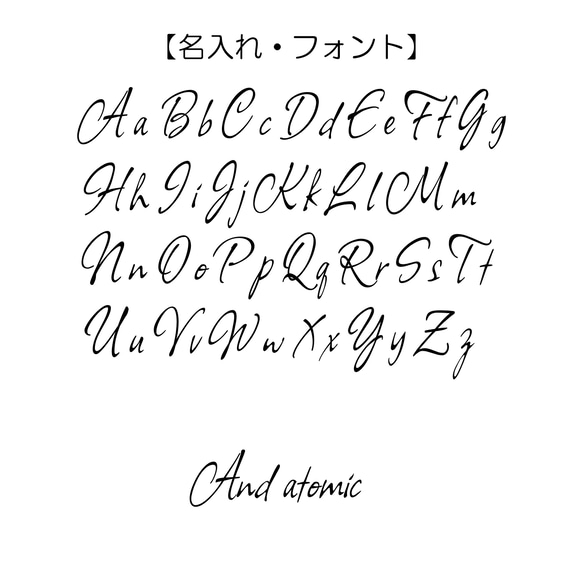 【名入れ・フォント】
Aa Bb Cc Dd Ee Ff Gg
Hh Ii Jj Kk Ll Mm
Nn Oo Pp Qq Rr Ss Tt
Uu Vv Ww Xx Yy Zz
And atomic